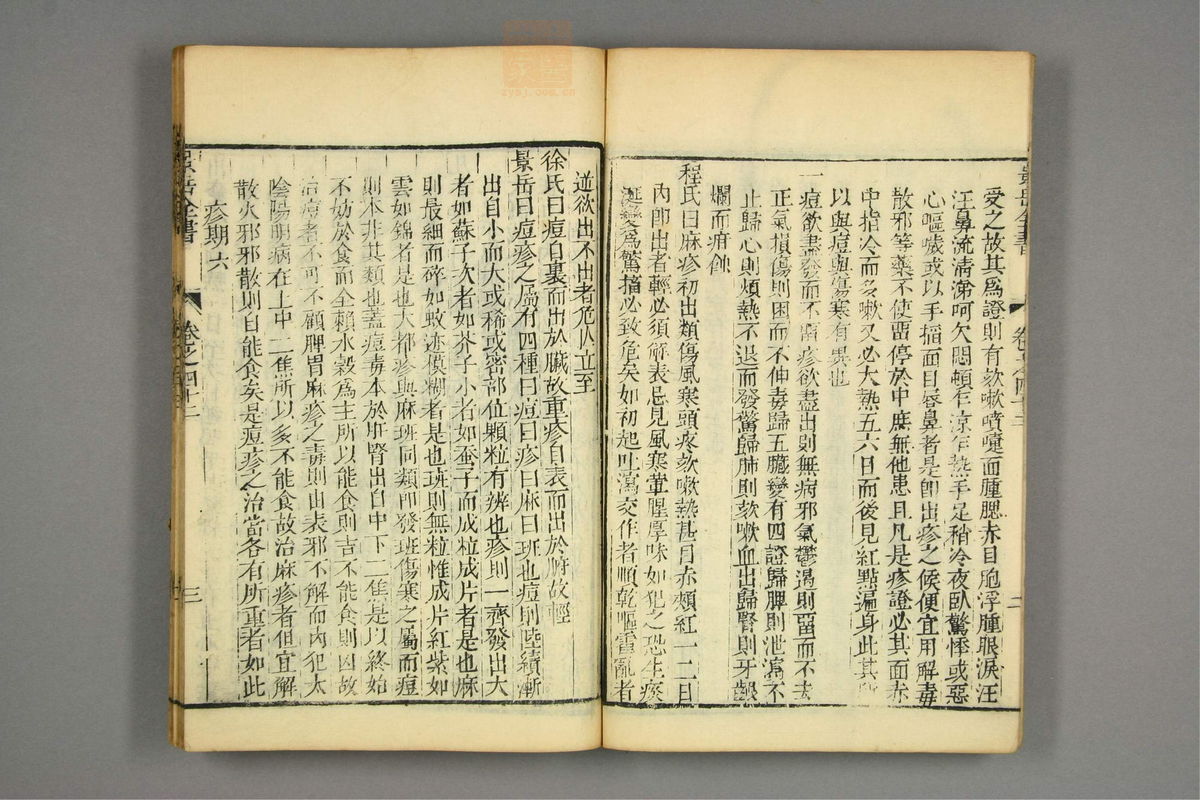 受之故其為證則有欬嗽噴嚏面腫腮赤目胞浮腫眼淚汪
汪鼻流清涕呵欠悶頓乍涼乍熱手足稍冷夜臥驚悸或惡
心嘔噦或以手搯面目唇鼻者是卽出疹之候便宜用解毒
散邪等藥不使畱停於中庶無他患且凡是疹證必其面赤
中指冷而多嗽又必大熱五六日而後見紅點遍身此其
以與痘與傷寒有異也
一痘欲盡發而不畱疹欲盡出則無病邪氣鬱遏則畱而不去
正氣損傷則困而不伸毒歸五臟變有四證歸脾則泄瀉不
止歸心則煩熱不退而發驚歸肺則欬嗽血出歸腎則牙齦
爛而疳蝕
程氏曰麻疹初出類傷風寒頭疼欬嗽熱甚目赤頰紅一二日
內卽出者輕必須解表忌見風寒葷腥厚味如犯之恐生痰
涎變為驚搐必致危矣如初起吐瀉交作者順乾嘔霍亂者
逆欲出不出者危亾立至
徐氏曰痘自裏而出於臟故重疹自表而出於腑故輕
景岳曰痘疹之屬有四種曰痘曰疹曰麻曰斑也痘則陸續漸
出自小而大或稀或密部位顆粒有辨也疹則一齊發出大
者如蘇子次者如芥子小者如蚕子而成粒成片者是也麻
則最細而碎如蚊迹模糊者是也斑則無粒惟成片紅紫如
雲如錦者是也大都疹與麻斑同類卽發斑傷寒之屬而痘
則本非其類也蓋痘毒本於肝腎出自中下二焦是以終始
不妨於食而全賴水穀為主所以能食則吉不能食則凶故
治痘者不可不顧脾胃麻疹之毒則由表邪不解而內犯太
陰陽明病在上中二焦所以多不能食故治麻疹者但宜解
散火邪邪散則自能食矣是痘疹之治當各有所重者如此
疹期六
景岳全書
卷之四十二
三